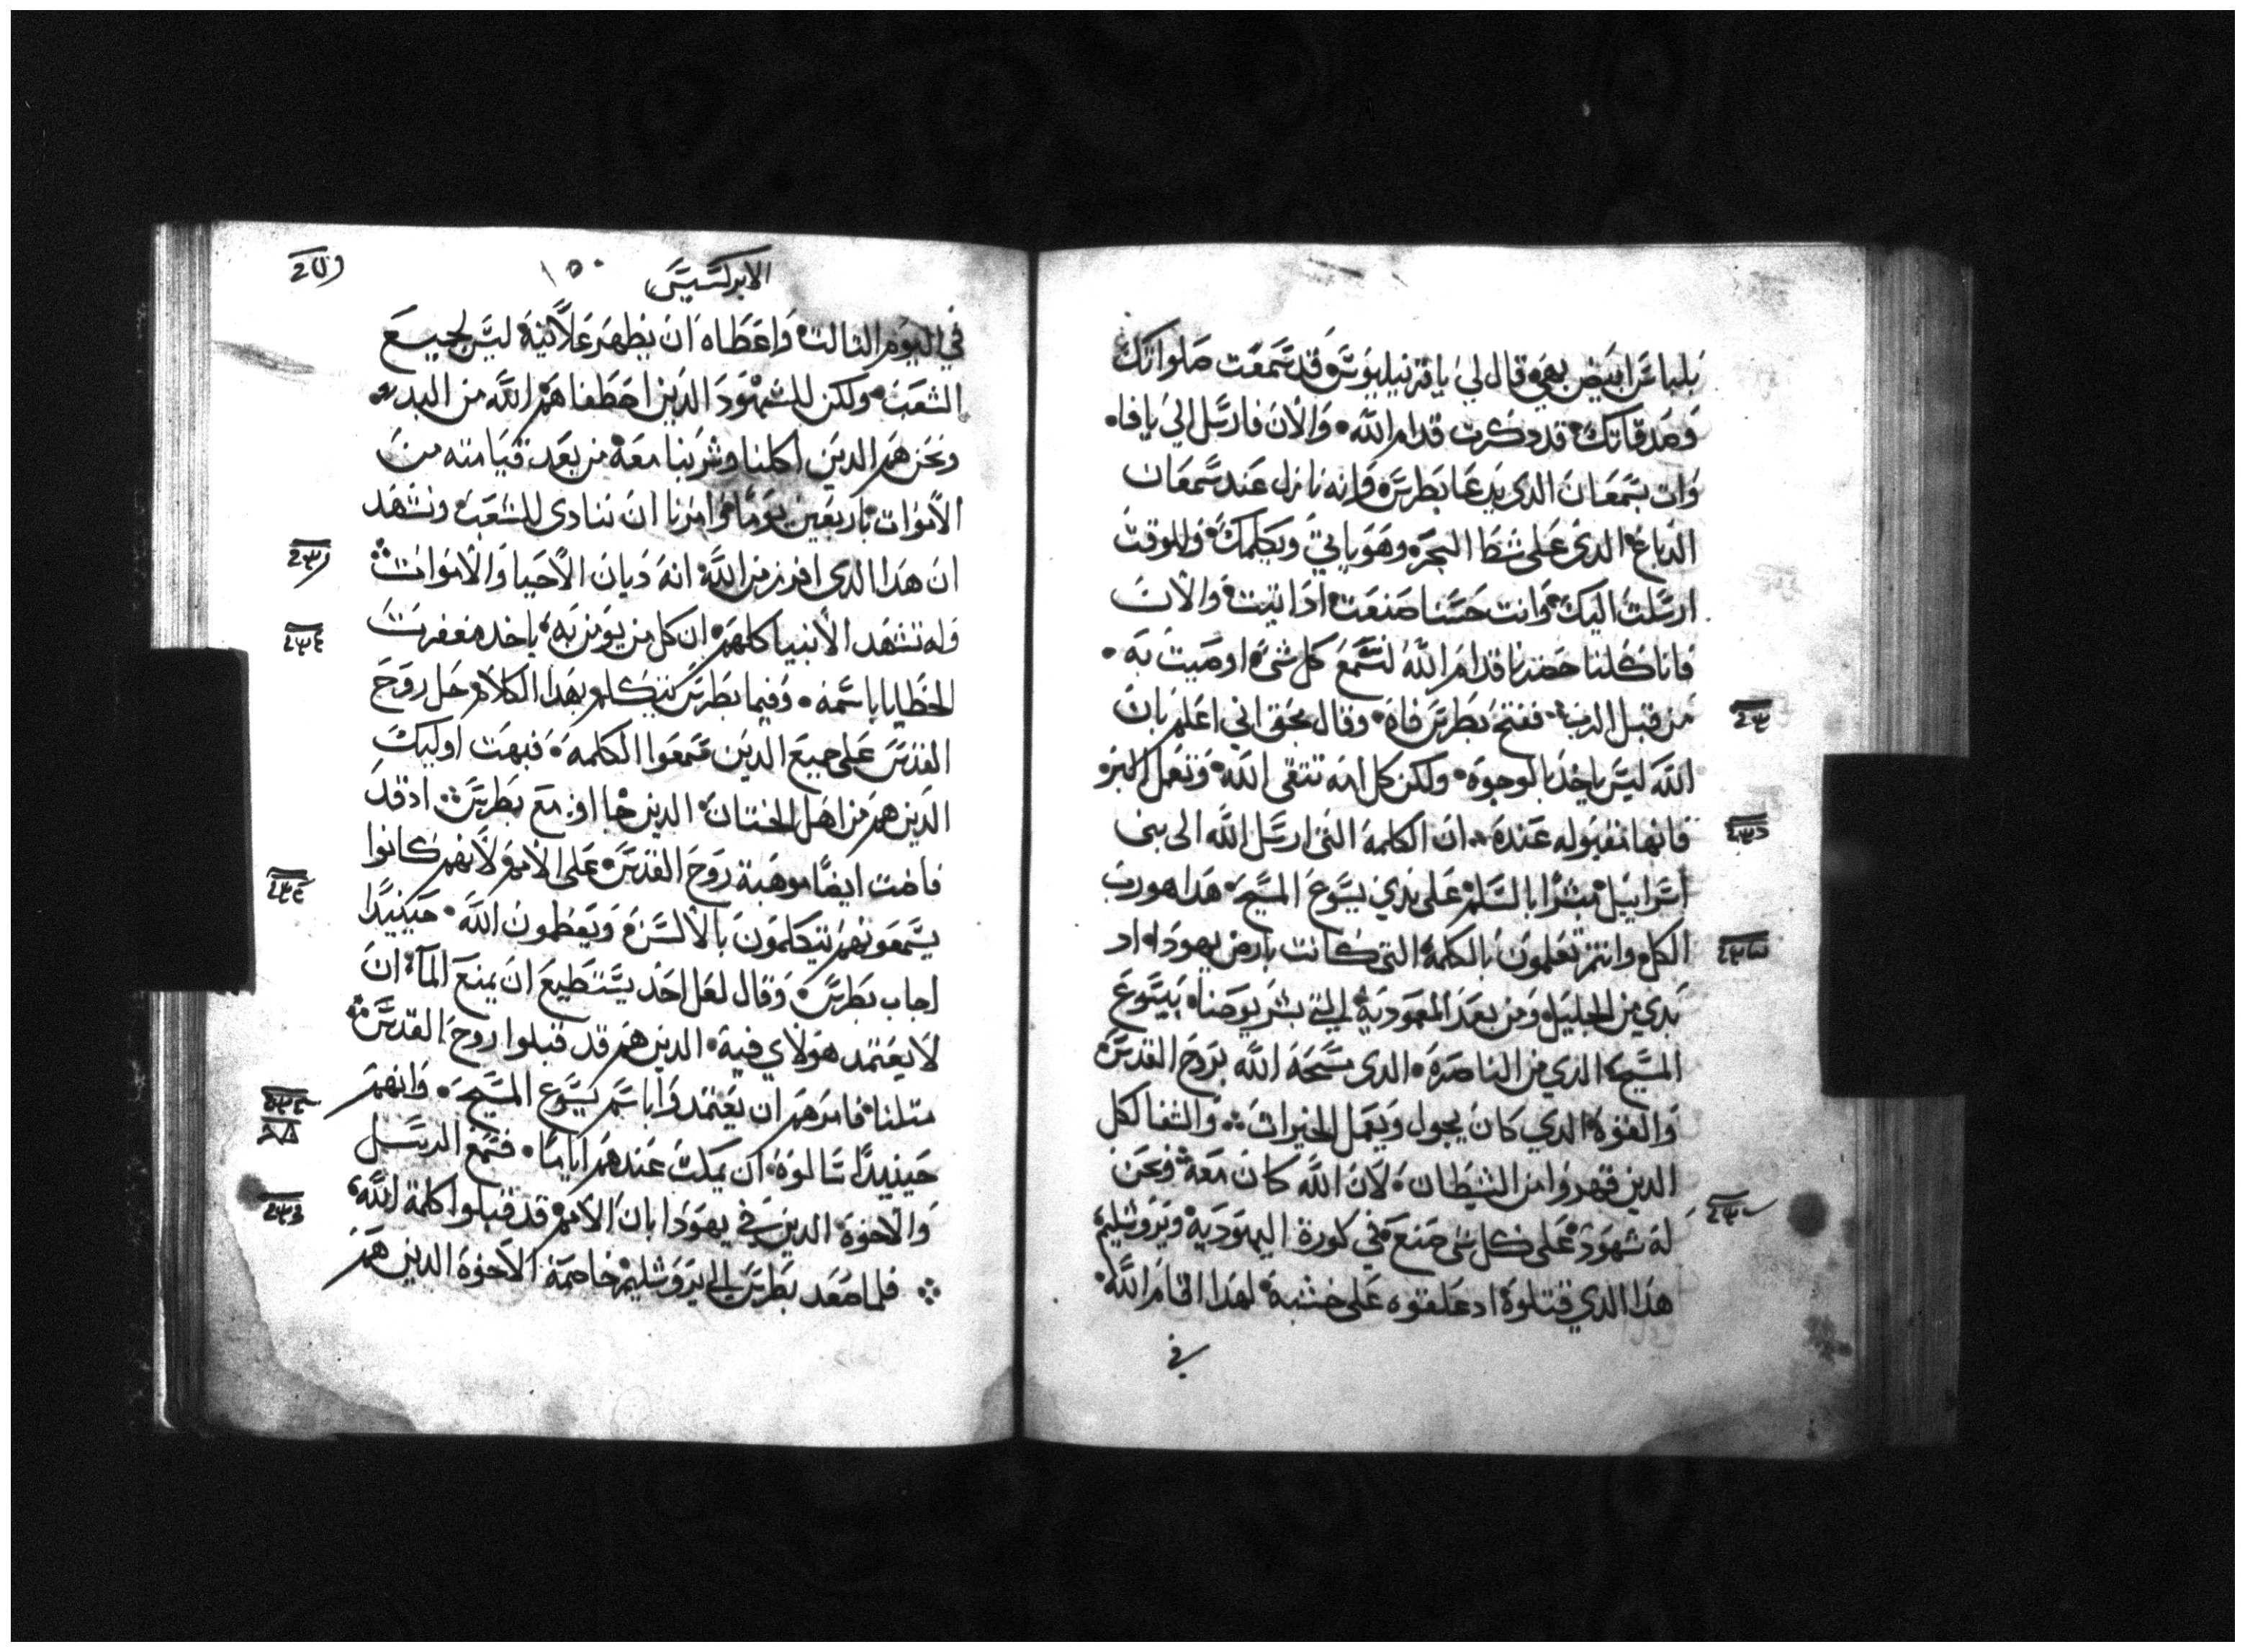 بلباس ابيض بهي وقال لي يا قرنيليوس قد سمعت صلواتك
وصدقاتك قد دكرت قدام الله والان فارسل الي يافا
وات بسمعان الدى يدعا بطرس فانه نازل عند سمعان
الدباغ الدى على شط البحر وهو ياتي ويكلمك وللوقت
ارسلت اليك وانت حسنا صنعت اد اتيت والان
فانا كلنا حضرنا قدام الله لنسمع كل شى اوصيت به
من قبل الرب ففتح بطرس فاه وقال بحق اني اعلم بان
الله ليس ياخد بالوجوه ولكن كل امه تتقى الله وتعمل البر
فانها مقبوله عنده ان الكلمة التى ارسل الله الى بنى
اسراييل مبشرا بالسلم على يدي يسوع المسيح هدا هو رب
الكل وانتم تعلمون بالكلمة التى كانت بارض يهودا اد
بدي من الجليل ومن بعد المعمودية التي بشر يوحنا بيسوع
المسيح الدي من الناصرة الدى مسحه الله بروح القدس
والقوة الدي كان يجول ويعمل الخيرات والشفا لكل
الدين قهروا من الشيطان لان الله كان معه ونحن
له شهود على كل شى صنع في كورة اليهودية ويروشليم
هدا الدي قتلوه اد علقوه على خشبة لهدا اقام الله
في
الابركسيس ١٥٠
في اليوم التالت واعطاه ان يظهر علانية ليس لجميع
الشعب ولكن للشهود الدين اصطفاهم الله من البدء
ونحن هم الدين اكلنا وشربنا معه من بعد قيامته من
الاموات باربعين يوما وامرنا ان ننادى للشعب ونشهد
ان هدا الدى افرز من الله انه ديان الاحيا والاموات
وله تشهد الانبيا كلهم ان كل من يومن به ياخد مغفرت
الخطايا باسمه وفيما بطرس يتكلم بهدا الكلام حل روح
القدس على جميع الدين سمعوا الكلمه فبهت اوليك
الدين هم من اهل الختان الدين جاءوا مع بطرس اد قد
فاضت ايضا موهبة روح القدس على الامم لانهم كانوا
يسمعونهم يتكلمون بالالسن ويعظمون الله حينيدا
اجاب بطرس وقال لعل احد يستطيع ان يمنع المآ ان
لا يعتمد هولاي فيه الدين هم قد قبلوا روح القدس
متلنا فامرهم ان يعتمدوا باسم يسوع المسيح وانهم
حينيدا سالوه ان يمكث عندهم اياما فسمع الرسل
والاخوة الدين في يهودا بان الامم قد قبلوا كلمة الله
فلما صعد بطرس الى يروشليم خاصمه الاخوة الدين هم